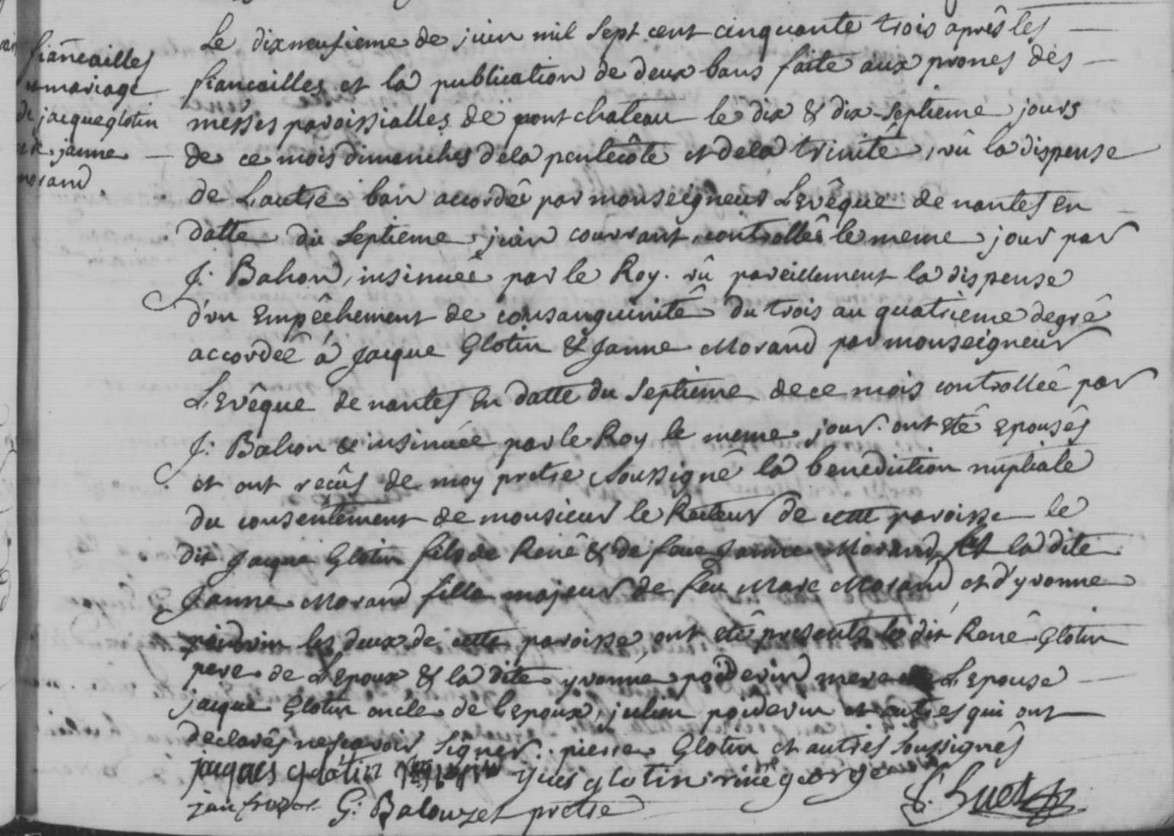 fiancailles
mariage
de jacque glotin
janne
morand.
Le dixneufieme de juin mil sept cent cinquante trois après les
fiancailles et la publication de deux bans faite aux prones des
messes paroissialles de pont chateau le dix & dix-septieme jours
de ce mois dimanches de la pentecôte et de la trinité, vû la dispense
de L'autre ban accordée par monseigneur L'Evêque de nantes en
datte du septieme juin courrant, controllée le meme jour par
J. Bahon, insinueê par le Roy. vû pareillement la dispense
d'un Empêchement de consanguinité du trois au quatrieme degré
accordeê à Jacque Glotin & Janne Morand par monseigneur
L'Evêque de nantes en datte du septieme de ce mois controlleê par
J. Bahon & insinuée par le Roy le meme jour. ont eté epousés
et ont recûs de moy pretre soussigné la benediction nuptiale
du consentement de monsieur le Recteur de cette paroisse le
dit Jacque Glotin fils de René & de feue Janne Morand, et la dite
Janne Morand fille majeur de feu Marc Morand, et d'yvonne
les deux de cette paroisse, ont eté presents le dit René Glotin
pere de L'epoux & la dite yvonne poiderin mere de L'Epouse
jacque Glotin oncle de l'epoux, julien poiderin et autres qui ont
declarés ne scavoir signer. pierre Glotin et autres soussignés
jacques glotin yues glotin rene george
jan G: Balouzet pretre